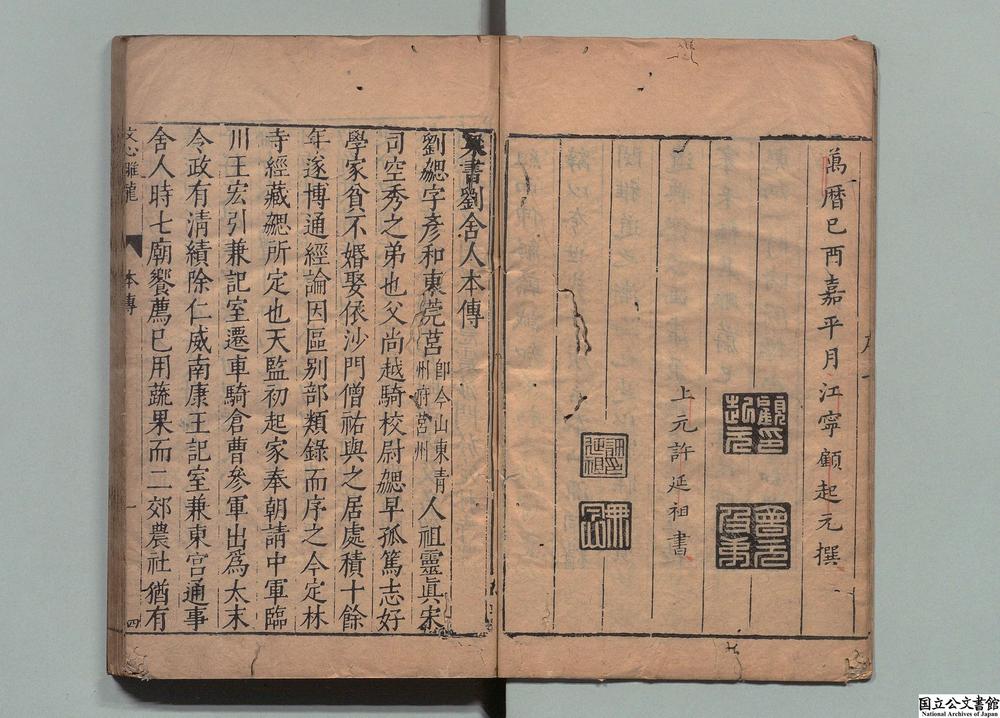 萬曆己酉嘉平月江寧顧起元撰
顧起元印
上元許延祖書
梁書劉舍人本傳
劉勰字彥和東莞莒即今山東青州府莒州人祖靈眞宋
司空秀之弟也父尚越騎校尉勰早孤篤志好
學家貧不婚娶依沙門僧祐與之居處積十餘
年遂博通經論因區別部類錄而序之今定林
寺經藏勰所定也天監初起家奉朝請中軍臨
川王宏引兼記室遷車騎倉曹參軍出爲太末
令政有清績除仁威南康王記室兼東宮通事
舍人時七廟饗薦已用蔬果而二郊農社猶有
文心雕龍
本傳
一
四
国立公文書館
National Archives of Japan